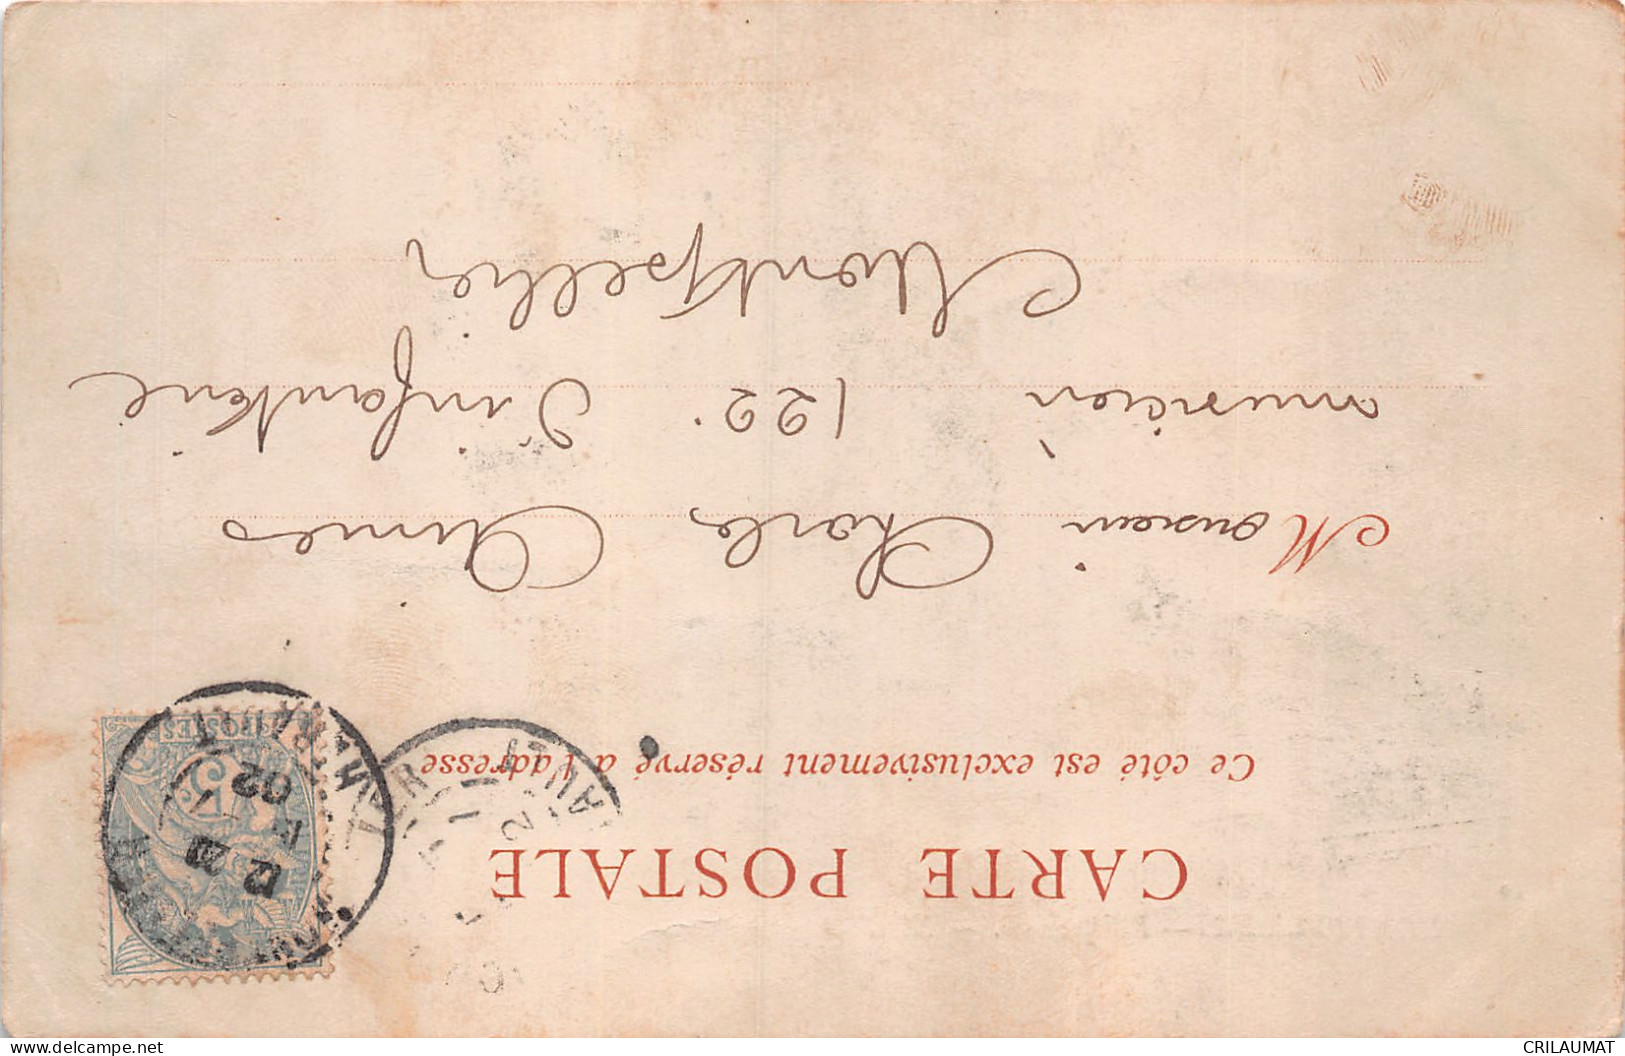 CARTE POSTALE
Ce côté est exclusivement réservé à l'adresse
Monsieur Charles Aimes
musicien 122e d'infanterie
Montpellier
POSTES
02
delcampe.net
CRILAUMAT